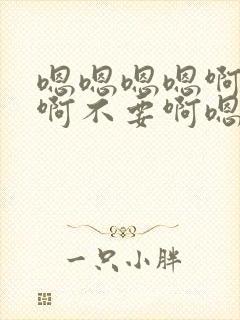 嗯嗯嗯嗯啊
啊不要啊嗯
一只小胖